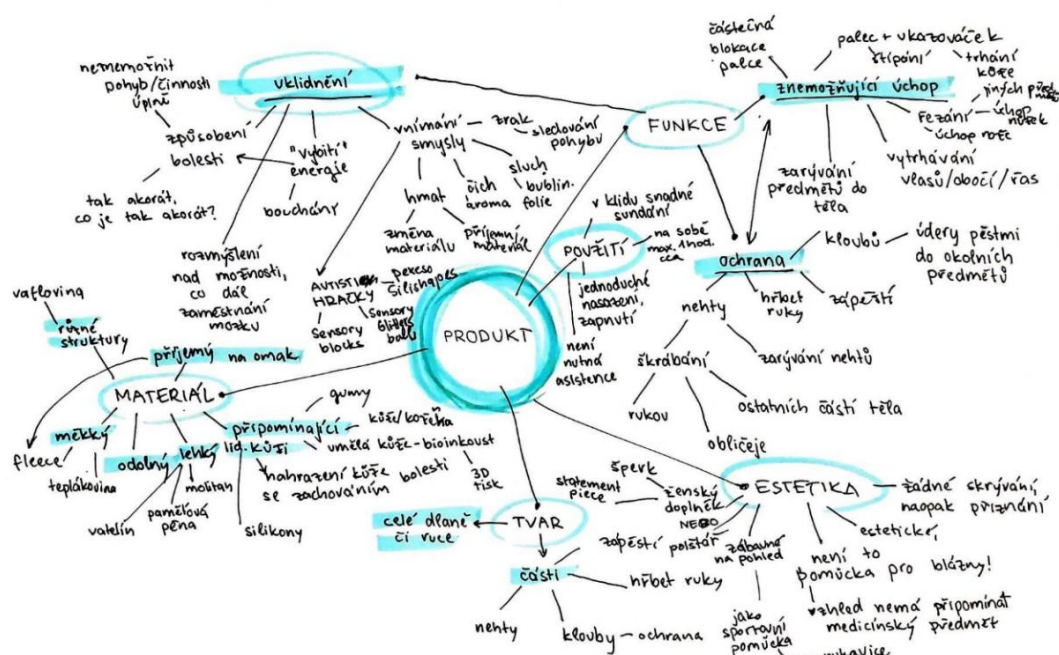 neznemožnit
pohyb/činnosti
úplně
uklidnění
způsobení
bolesti
tak akorát,
co je tak akorát?
"vybití"
energie
bouchání
rozmýšlení
nad možnosti,
co dál
zaměstnání
mozku
vnímání
smysly
zrak
sledování
pohybu
sluch
bublin.
folie
čich
aroma
hmat
změna
materiálu
příjemný
materiál
AUTISTI
HRAČKY
pexeso
silishapes
sensory
blocks
sensory
glitters
ball
FUNKCE
částečná
blokace
palce
palec + ukazováček
štípání
trhání
kůže
znemožňující úchop
řezání
úchop nože
úchop
nůžek
vytrhávání
vlasů/obočí/řas
zarývání
předmětů do
těla
ochrana
kloubů
údery pěstmi
do okolních
předmětů
hřbet
ruky
zápěstí
nehty
škrábání
zarývání nehtů
rukou
ostatních částí těla
obličeje
v klidu snadné
sundání
POUŽITÍ
na sobě
max. 1 hod.
cca
jednoduché
nasazení,
zapnutí
není
nutná
asistence
PRODUKT
vaflovina
různé
struktury
příjemý na omak
MATERIÁL
měkký
fleece
teplákovina
odolný
lehký
vatelín
paměťová
pěna
molitan
připomínající
lid. kůži
gumy
umělá kůže - bioinkoust
3D
tisk
nahrazení kůže
se zachováním bolesti
silikony
TVAR
celé dlaně
či ruce
části
hřbet ruky
nehty
klouby - ochrana
zápěstí
ESTETIKA
šperk
statement
piece
ženský
doplněk
NEBO
polštář
zábavné
na pohled
jako
sportovní
pomůcka
rukavice
žádné skrývání,
naopak přiznání
estetické,
není to
pomůcka pro blázny!
vzhled nemá připomínat
medicínský předmět